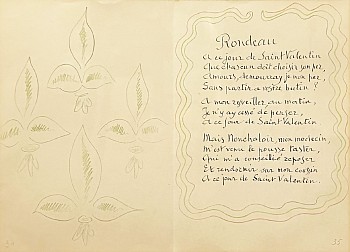 Rondeau
A ce jour de Saint Valentin
Que chascun doit choisir son per,
Amours, demourray-je non per,
Sans partir a vostre butin ?
A mon resveiller au matin
Je n'y ay cessé de penser,
A ce jour de Saint Valentin
Mais Nonchaloir, mon medecin,
M'est venu le pousse taster,
Qui m'a conseillié reposer
Et rendormir sur mon coussin
A ce jour de Saint Valentin.